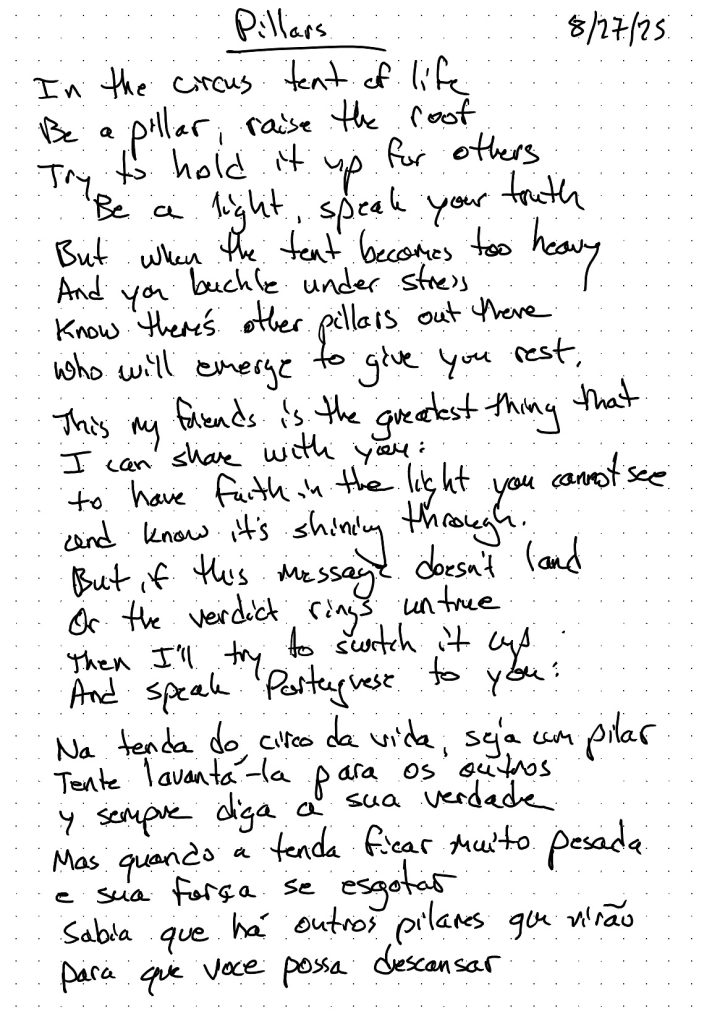 Pillars
8/27/25
In the circus tent of life
Be a pillar, raise the roof
Try to hold it up for others
Be a light, speak your truth
But when the tent becomes too heavy
And you buckle under stress
Know there's other pillars out there
who will emerge to give you rest.
This my friends is the greatest thing that
I can share with you:
to have faith in the light you cannot see
and know it's shining through.
But if this message doesn't land
Or the verdict rings untrue
Then I'll try to switch it up
And speak Portuguese to you:
Na tenda do circo da vida, seja um pilar
Tente lavantá-la para os outros
y sempre diga a sua verdade
Mas quando a tenda ficar muito pesada
e sua força se esgotar
Sabia que há outros pilares que virão
para que voce possa descansar